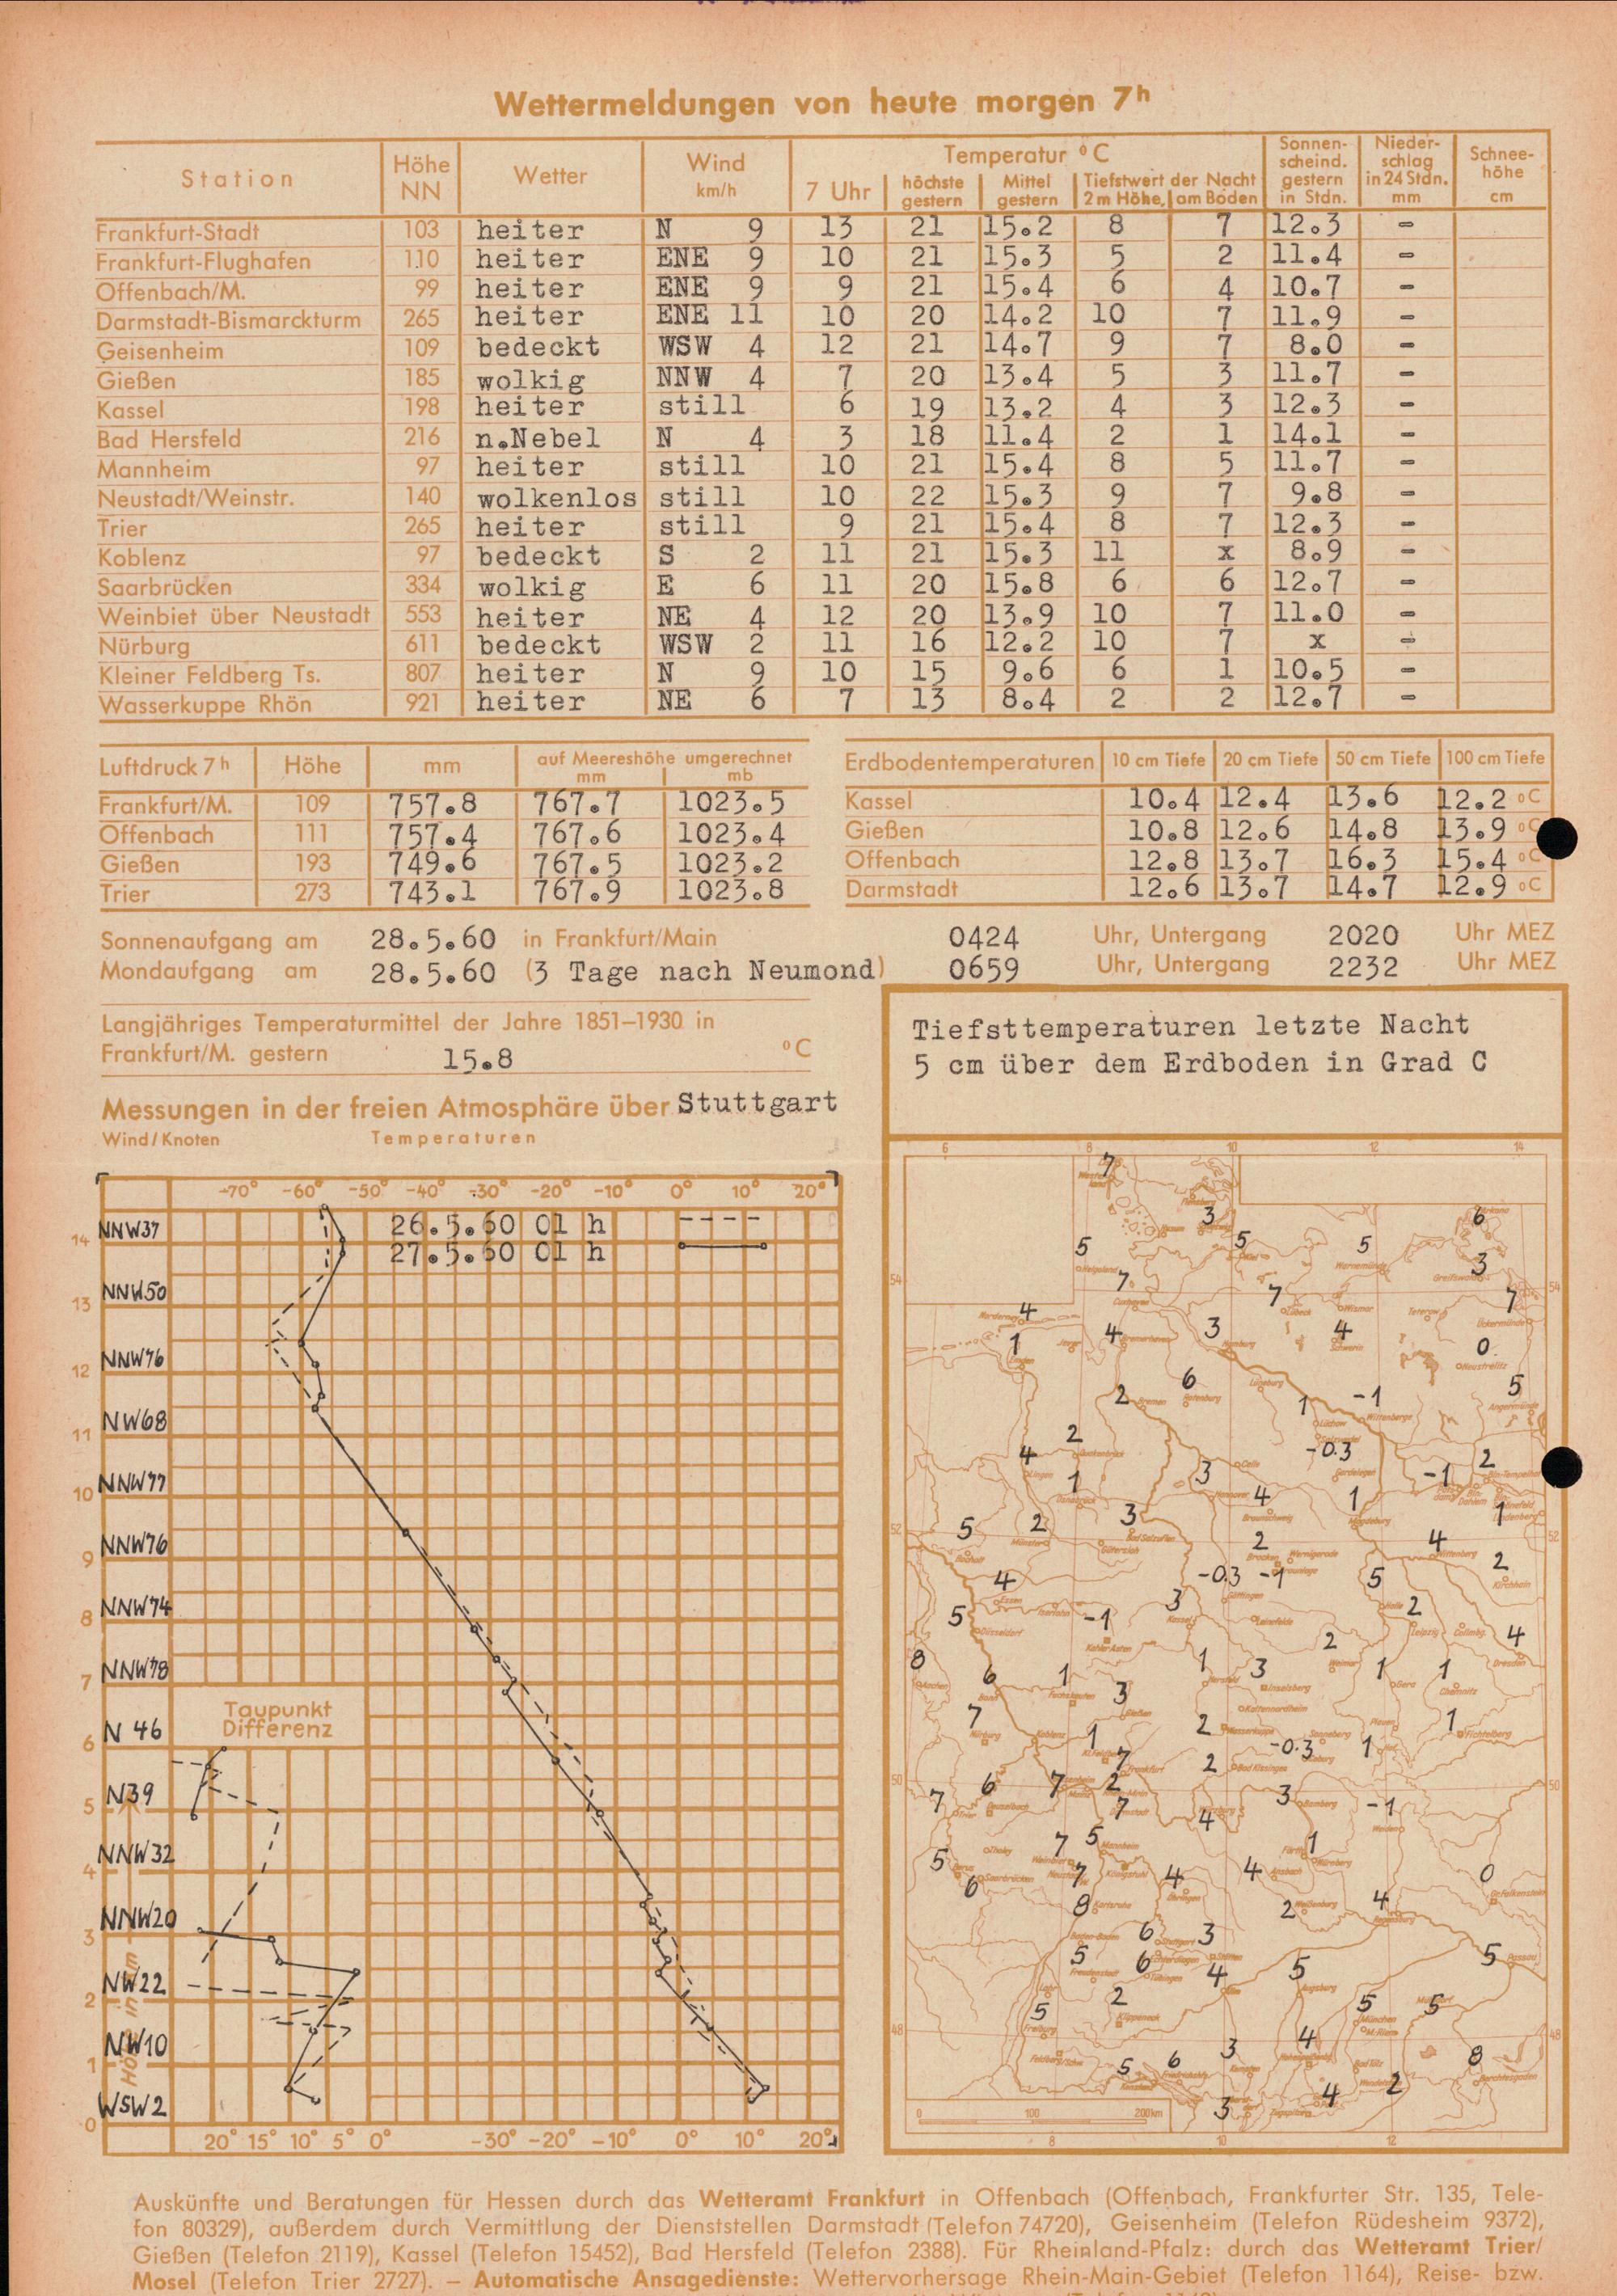 Wettermeldungen von heute morgen 7h
Station Höhe NN Wetter Wind km/h Temperatur °C 7 Uhr höchste gestern Mittel gestern Tiefstwert der Nacht 2 m Höhe, am Boden Sonnenscheind. gestern in Stdn. Niederschlag in 24 Stdn. mm Schneehöhe cm
Frankfurt-Stadt 103 heiter N 9 13 21 15.2 8 7 12.3 -
Frankfurt-Flughafen 110 heiter ENE 9 10 21 15.3 5 2 11.4 -
Offenbach/M. 99 heiter ENE 9 9 21 15.4 6 4 10.7 -
Darmstadt-Bismarckturm 265 heiter ENE 11 10 20 14.2 10 7 11.9 -
Geisenheim 109 bedeckt WSW 4 12 21 14.7 9 7 8.0 -
Gießen 185 wolkig NNW 4 7 20 13.4 5 3 11.7 -
Kassel 198 heiter still 6 19 13.2 4 3 12.3 -
Bad Hersfeld 216 n.Nebel N 4 3 18 11.4 2 1 14.1 -
Mannheim 97 heiter still 10 21 15.4 8 5 11.7 -
Neustadt/Weinstr. 140 wolkenlos still 10 22 15.3 9 7 9.8 -
Trier 265 heiter still 9 21 15.4 8 7 12.3 -
Koblenz 97 bedeckt S 2 11 21 15.3 11 x 8.9 -
Saarbrücken 334 wolkig E 6 11 20 15.8 6 6 12.7 -
Weinbiet über Neustadt 553 heiter NE 4 12 20 13.9 10 7 11.0 -
Nürburg 611 bedeckt WSW 2 11 16 12.2 10 7 x -
Kleiner Feldberg Ts. 807 heiter N 9 10 15 9.6 6 1 10.5 -
Wasserkuppe Rhön 921 heiter NE 6 7 13 8.4 2 2 12.7 -
Luftdruck 7h Höhe mm auf Meereshöhe umgerechnet mm mb
Frankfurt/M. 109 757.8 767.7 1023.5
Offenbach 111 757.4 767.6 1023.4
Gießen 193 749.6 767.5 1023.2
Trier 273 743.1 767.9 1023.8
Erdbodentemperaturen 10 cm Tiefe 20 cm Tiefe 50 cm Tiefe 100 cm Tiefe
Kassel 10.4 12.4 13.6 12.2 °C
Gießen 10.8 12.6 14.8 13.9 °C
Offenbach 12.8 13.7 16.3 15.4 °C
Darmstadt 12.6 13.7 14.7 12.9 °C
Sonnenaufgang am 28.5.60 in Frankfurt/Main 0424 Uhr, Untergang 2020 Uhr MEZ
Mondaufgang am 28.5.60 (3 Tage nach Neumond) 0659 Uhr, Untergang 2232 Uhr MEZ
Langjähriges Temperaturmittel der Jahre 1851–1930 in
Frankfurt/M. gestern 15.8 °C
Messungen in der freien Atmosphäre über Stuttgart
Wind/Knoten Temperaturen
-70° -60° -50° -40° -30° -20° -10° 0° 10° 20°
26.5.60 01 h
27.5.60 01 h
14 NNW37
NNW50
13
NNW76
12
NW68
11
NNW77
10
NNW76
9
NNW74
8
NNW78
7
Taupunkt
Differenz
N 46
6
N39
5
NNW32
4
NNW20
3
NW22
2
NW10
1
WSW2
0
Höhe in km
20° 15° 10° 5° 0° -30° -20° -10° 0° 10° 20°
Tiefsttemperaturen letzte Nacht
5 cm über dem Erdboden in Grad C
6 8 10 12 14
7
3 6
5 5 5 3
7 7 7
4 1 4 3 4 0
2 6 1 -1 5
2 -0.3
4 1 3 4 1 -1 2
5 2 3 1
2 4 2
4 -0.3 -1 5
5 -1 3 2 4
8 6 1 3 1 3 2 1 1
7 1 2 -0.3 1 1
7 2
7 6 7 2 7 4 3 -1
5 7 5 1
6 7 4 4 0
8 2 4
6 3
5 6 4 5 5
5 2 5 5
5 6 3 4 8
3 4 2
0 100 200km
8 10 12
Auskünfte und Beratungen für Hessen durch das Wetteramt Frankfurt in Offenbach (Offenbach, Frankfurter Str. 135, Tele-
fon 80329), außerdem durch Vermittlung der Dienststellen Darmstadt (Telefon 74720), Geisenheim (Telefon Rüdesheim 9372),
Gießen (Telefon 2119), Kassel (Telefon 15452), Bad Hersfeld (Telefon 2388). Für Rheinland-Pfalz: durch das Wetteramt Trier/
Mosel (Telefon Trier 2727). – Automatische Ansagedienste: Wettervorhersage Rhein-Main-Gebiet (Telefon 1164), Reise- bzw.